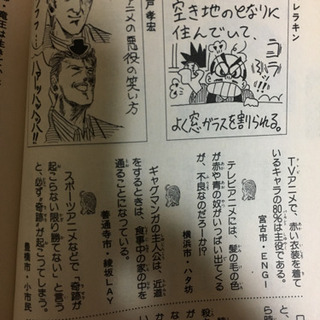 レラキン
空き地のとなりに
住んでいて、
コラ!
よく窓ガラスを割られる。
戸孝宏
アニメの悪役の笑い方
TVアニメで、赤い衣装を着て
いるキャラの80%は主役である。
宮古市・ENGI
テレビアニメには、髪の毛の色
が赤や青の奴がいっぱい出てくる
が、不良なのだろーか!?
横浜市・ハタ坊
ギャグマンガの主人公は、近道
をするときは、食事中の家の中を
通ることになっている。
善通寺市・錬坂LAY
スポーツアニメなどで、「奇跡が
起こらない限り勝てない」と言う
と、必ず「奇跡」が起こってしまう。
豊橋市・小市民